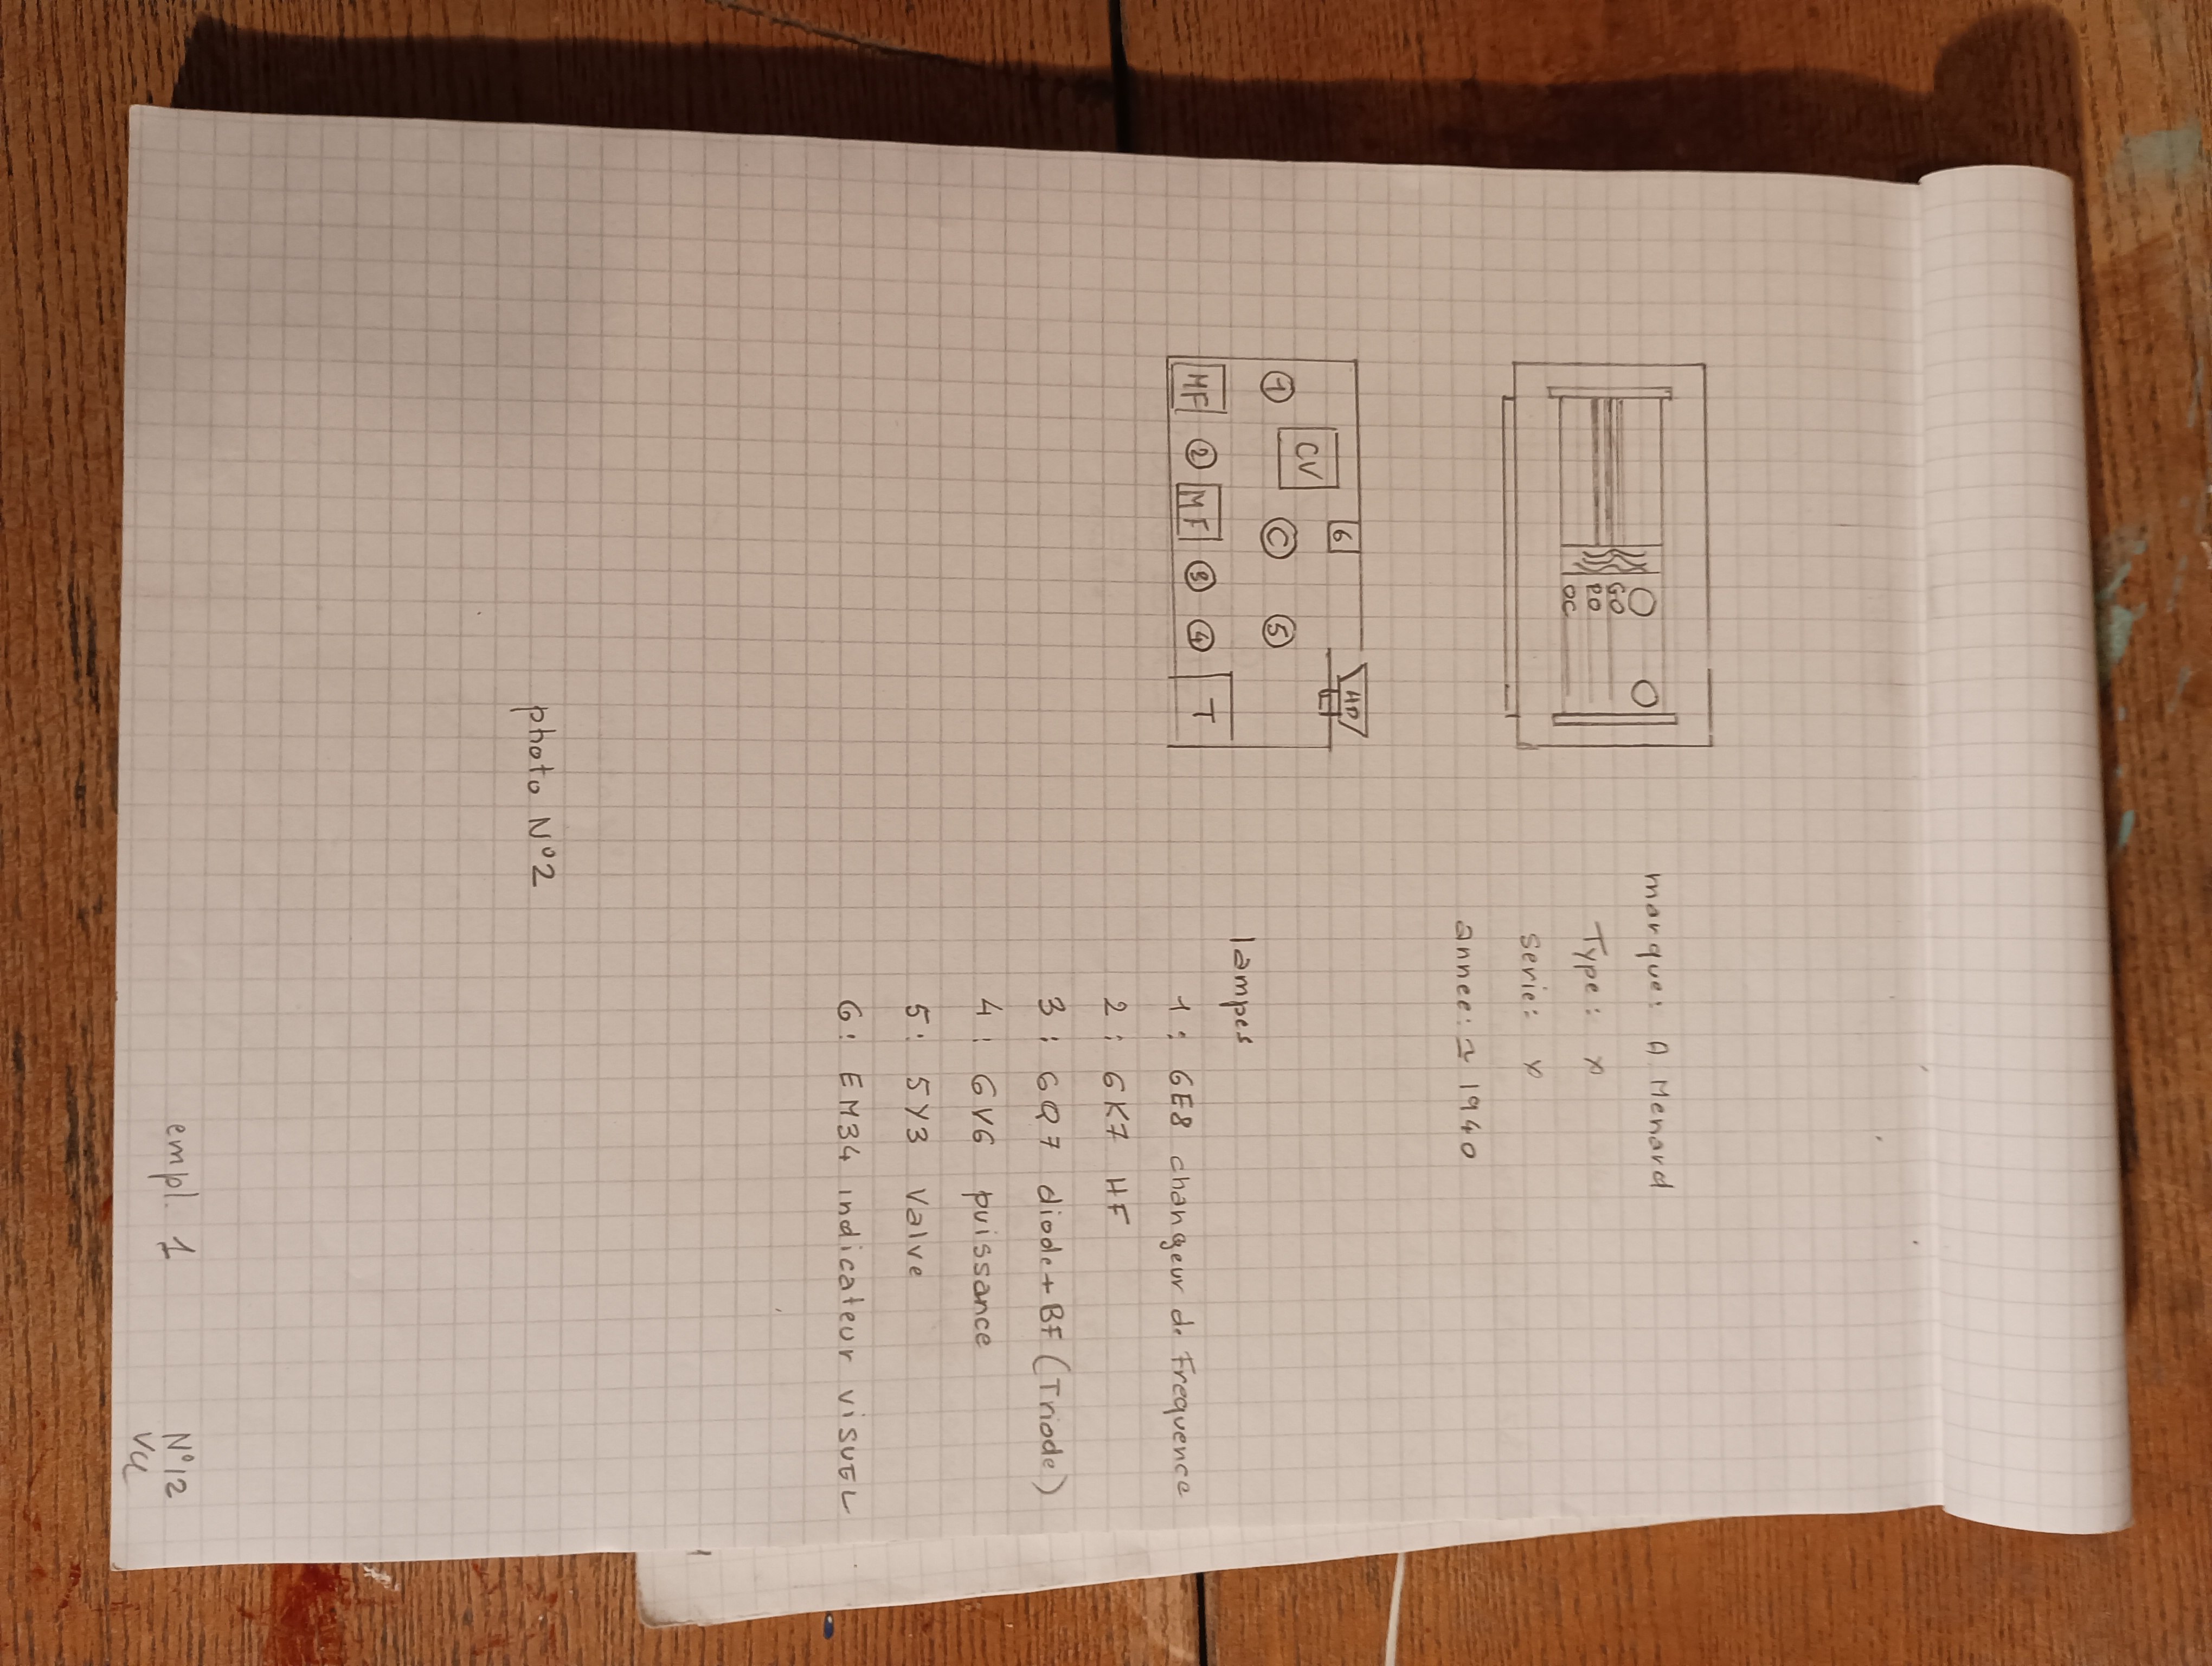 GO
PO
OC
marque: A. Menard
Type: x
serie: x
annee: ≃ 1940
6
HP
CV
1
C
5
MF
2
MF
3
4
T
lampes
1: 6E8 changeur de Frequence
2: 6K7 HF
3: 6Q7 diode+BF (Triode)
4: 6V6 puissance
5: 5Y3 Valve
6: EM34 indicateur VISUEL
photo N°2
empl. 1
N°12
VU